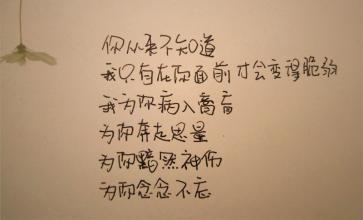 你从来不知道
我只有在你面前才会变得脆弱
我为你病入膏肓
为你奔走思量
为你黯然神伤
为你念念不忘